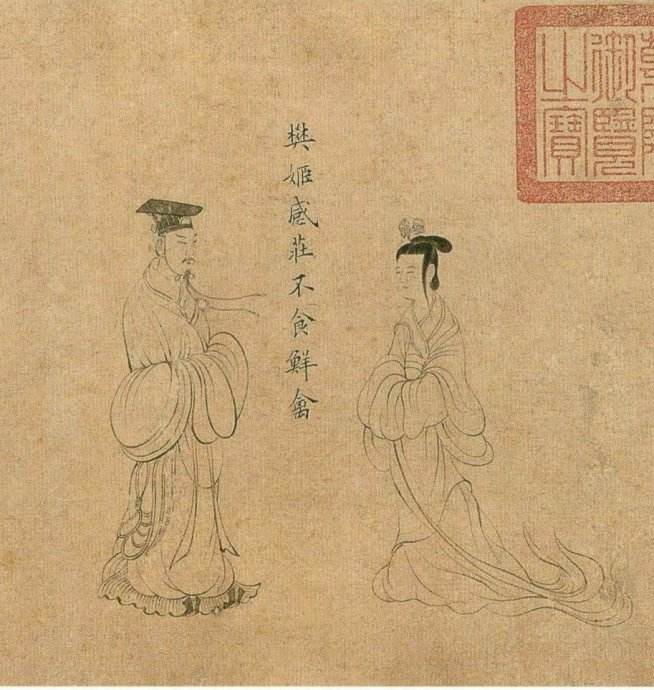 乾隆
御覽
之寶
樊姬感莊不食鮮禽